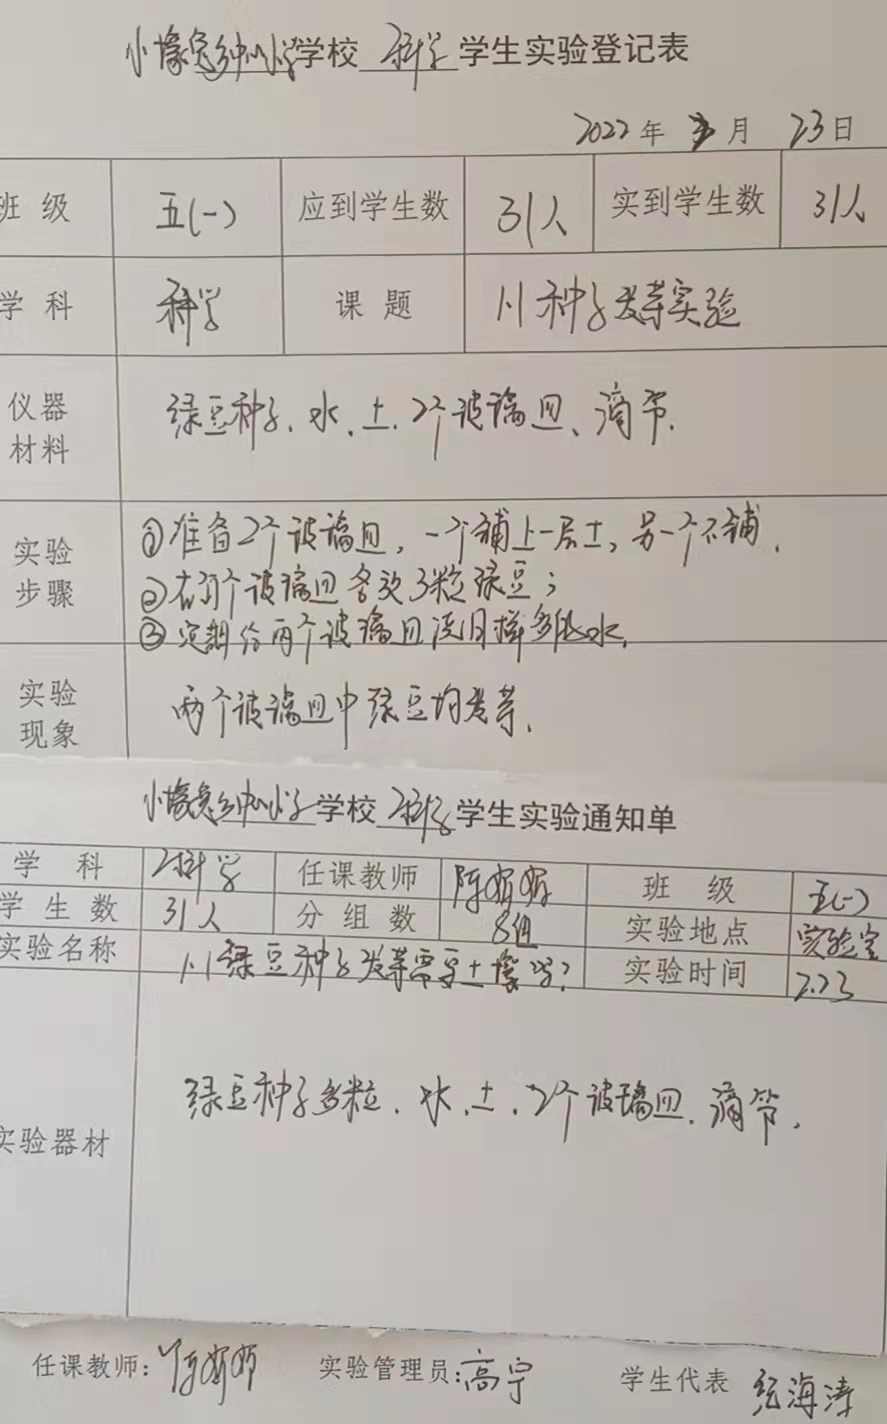 小壕兔乡中心小学学校 科学 学生实验登记表
2022 年 月 23日
班 级 五(一) 应到学生数 31人 实到学生数 31人
学 科 科学 课 题 1.1 种子发芽实验
仪器 材料 绿豆种子、水、土、2个玻璃皿、滴管.
实验 步骤 ①准备2个玻璃皿，一个铺上一层土，另一个不铺.
②在两个玻璃皿各放3粒绿豆；
③定期给两个玻璃皿浇同样多的水.
实验 现象 两个玻璃皿中绿豆均发芽.
小壕兔乡中心小学学校 科学 学生实验通知单
学 科 科学 任课教师 陈娇娇 班 级 五(一)
学 生 数 31人 分 组 数 8组 实验地点 实验室
实验名称 1.1绿豆种子发芽需要土壤吗? 实验时间 2.23
实验器材 绿豆种子多粒、水、土、2个玻璃皿、滴管.
任课教师: 陈娇娇 实验管理员: 高宁 学生代表 纪海涛